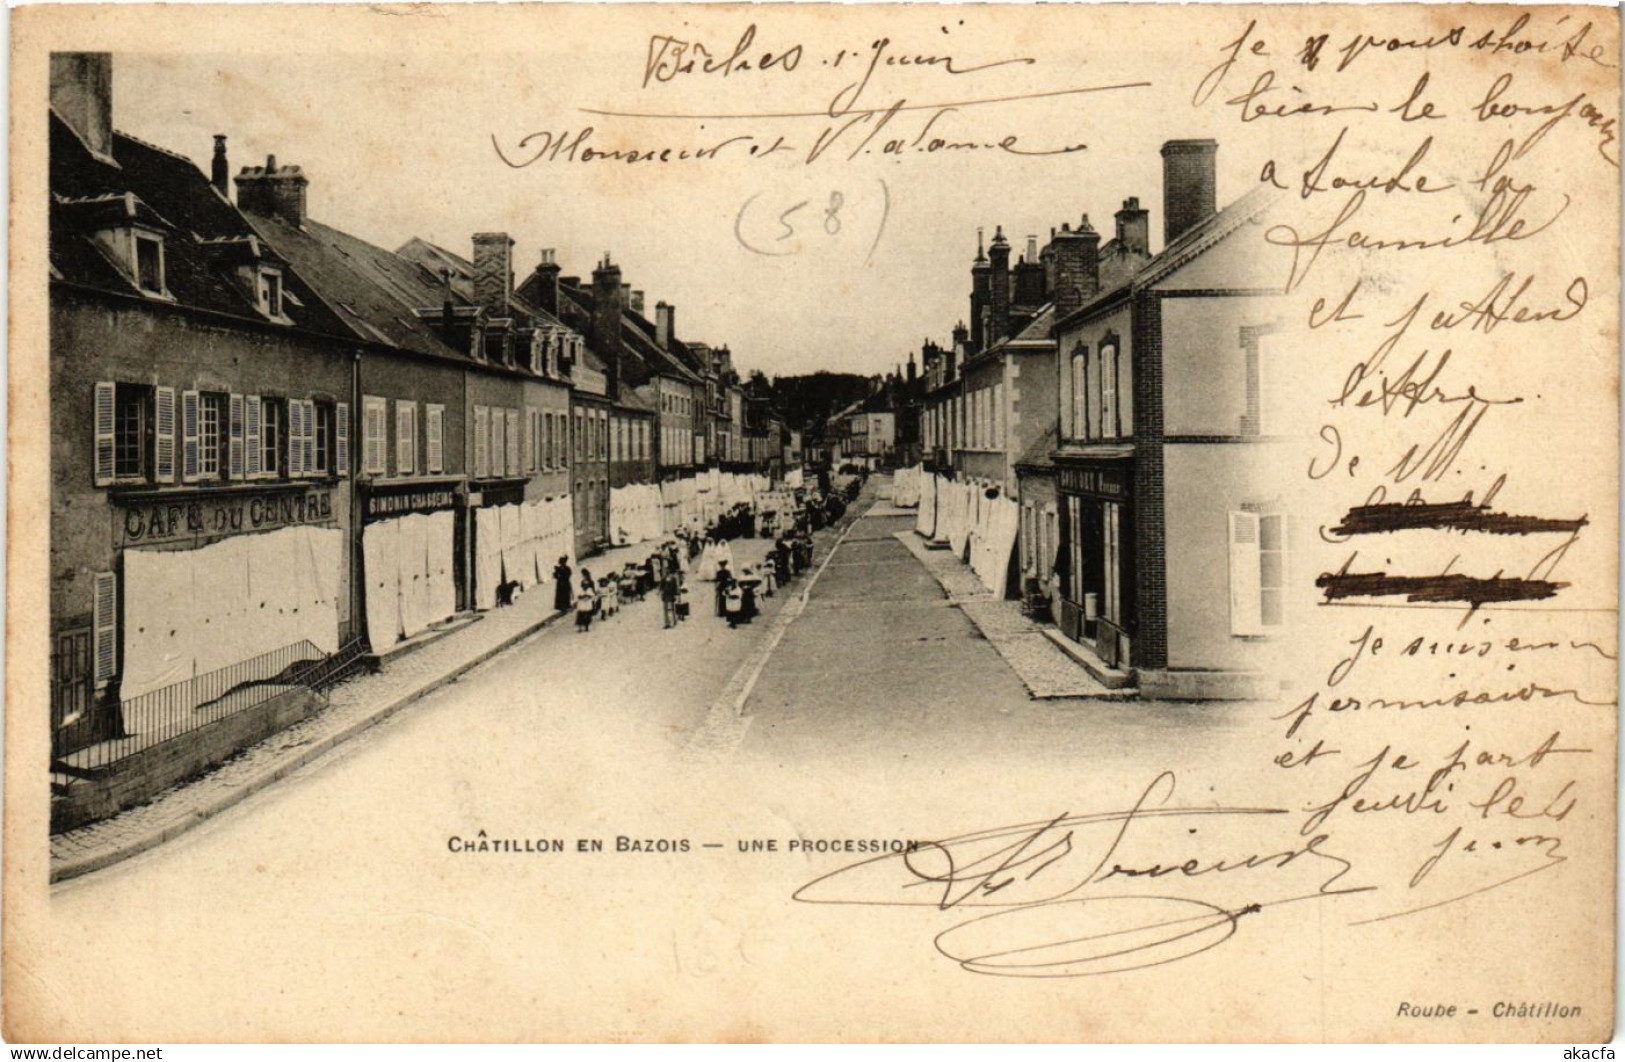 Biches 1 Juin
Monsieur et Madame
(58)
Je vous shoite
bien le bonjour
a toute la
famille
et jattend
lettre
de M.
je suis enn
permission
et je part
jeudi le 4
juin
CAFÉ DU CENTRE
SIMONIN CHAUSSEUR
CHÂTILLON EN BAZOIS — UNE PROCESSION
Roube - Châtillon
akacfa